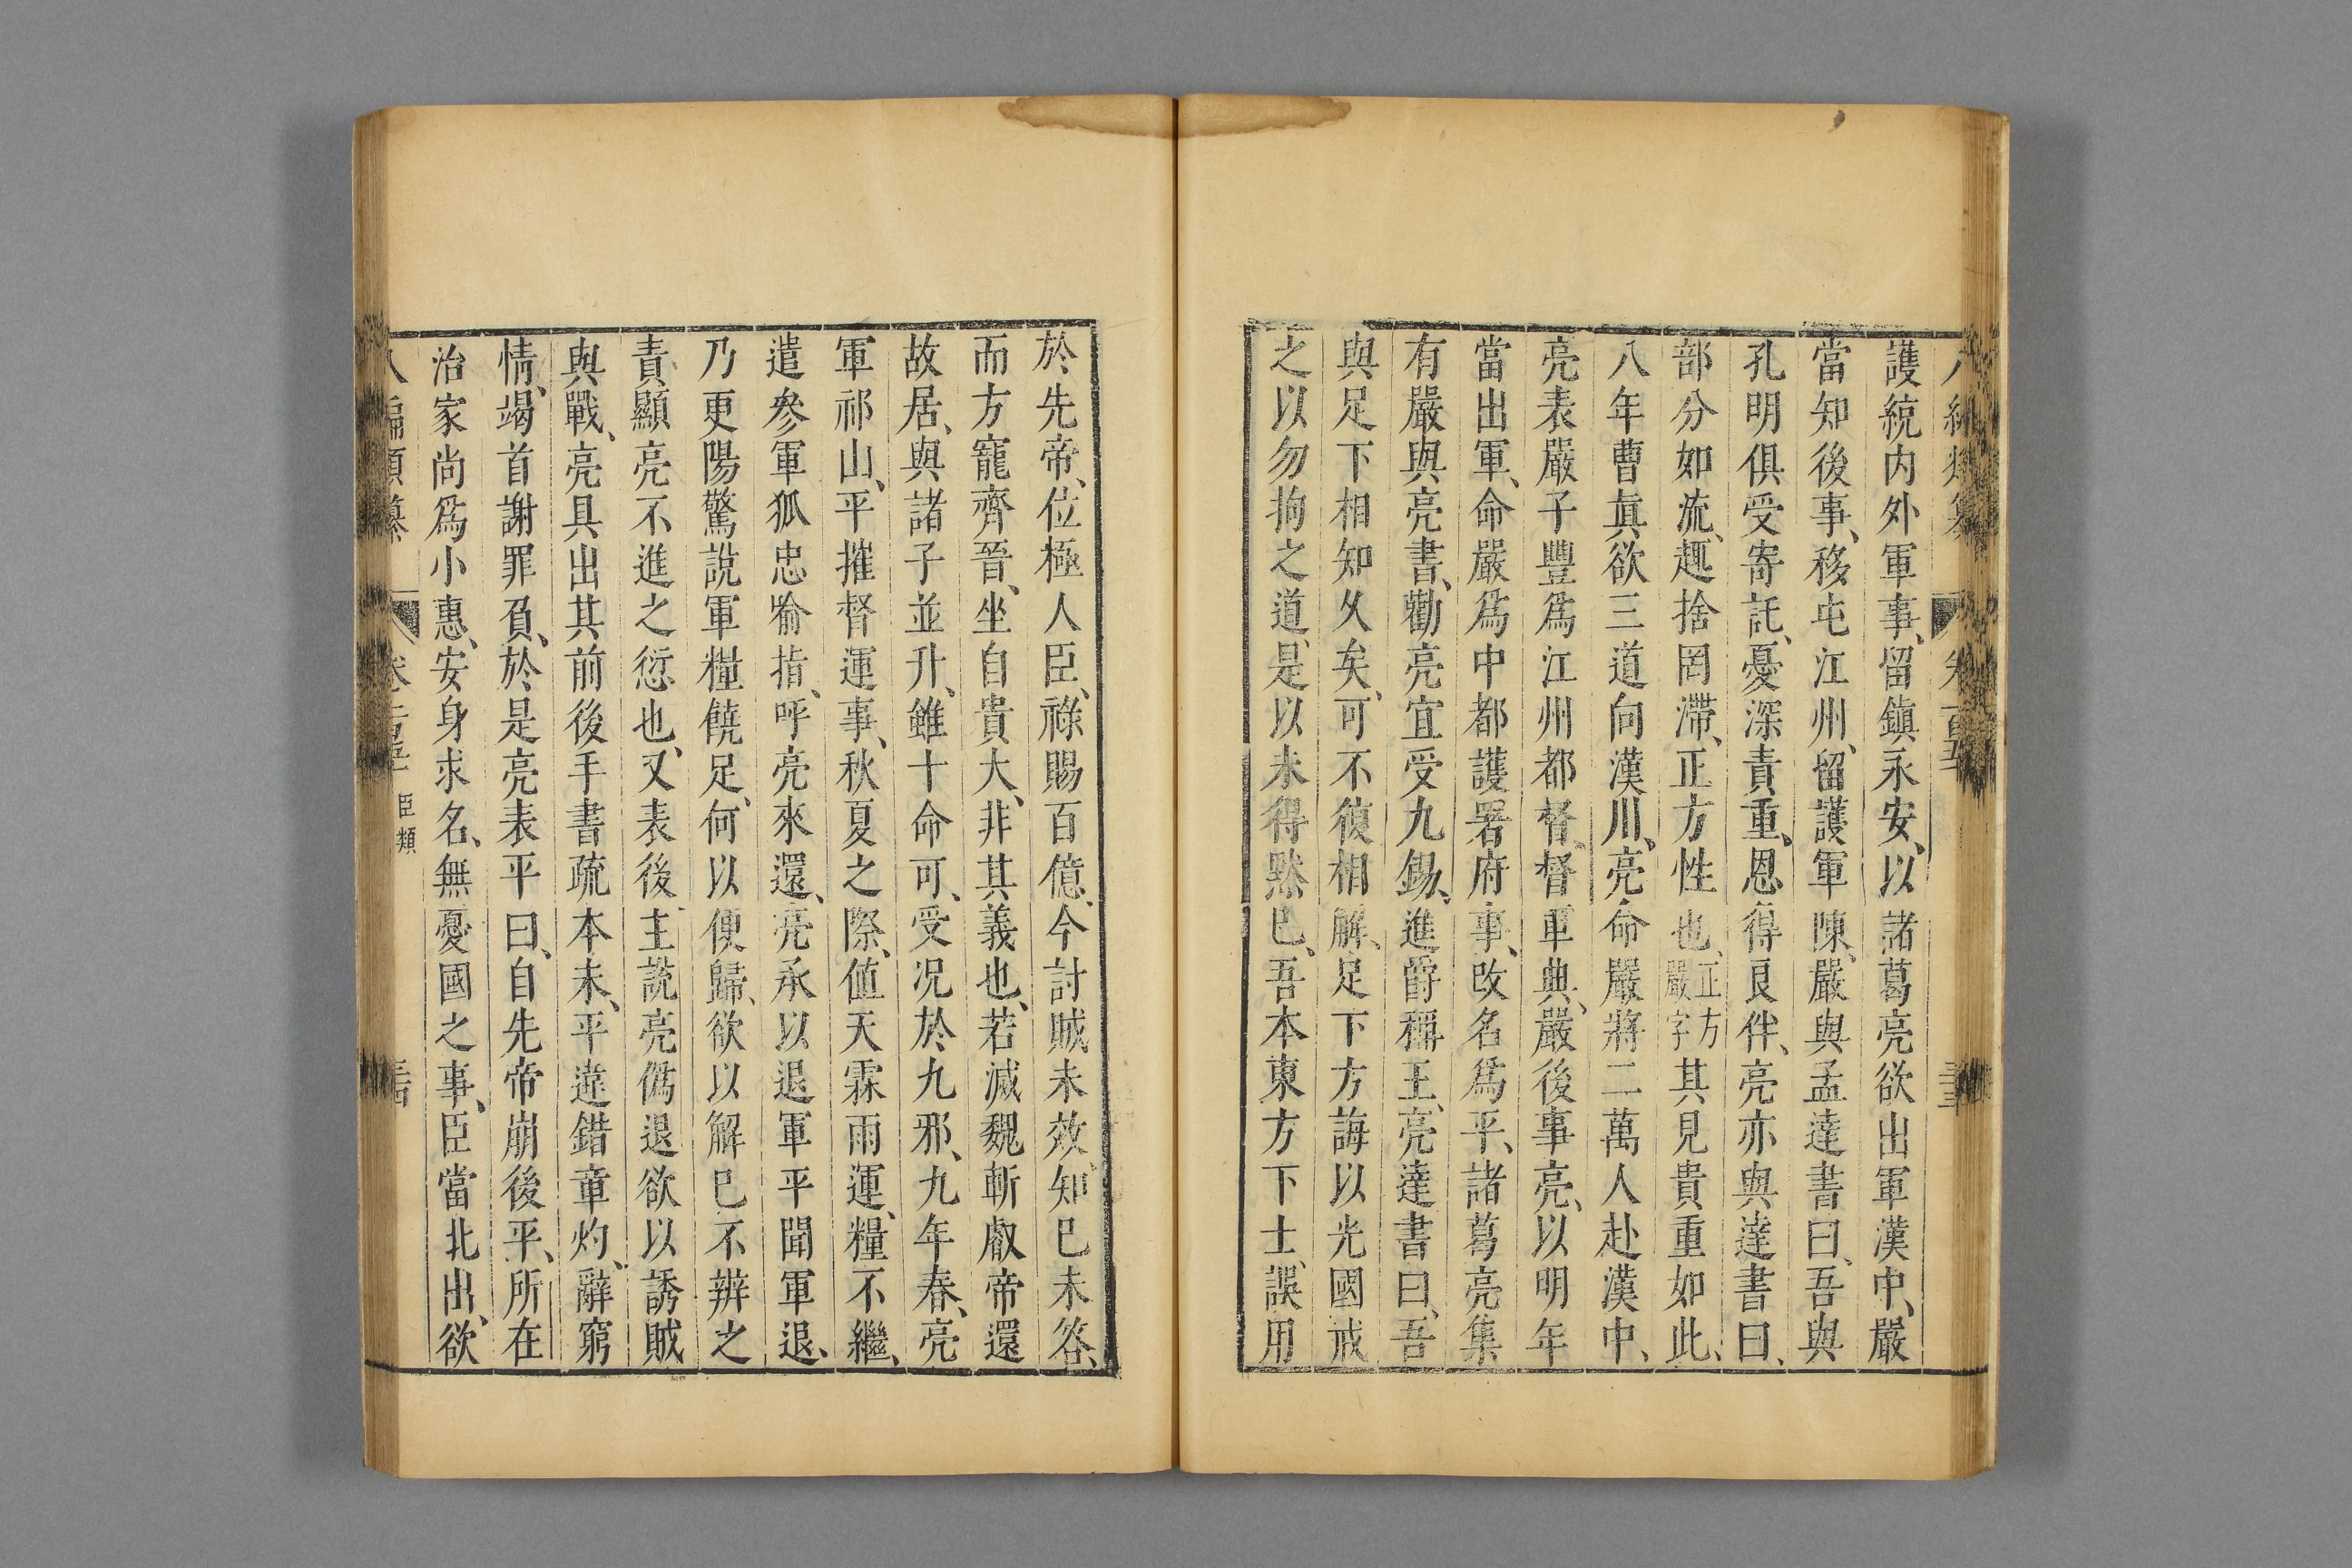 護統内外軍事、留鎮永安、以諸葛亮欲出軍漢中、嚴
當知後事、移屯江州、留護軍陳、嚴與孟達書曰、吾與
孔明俱受寄託、憂深責重、恩得良伴、亮亦與達書曰、
部分如流、趣捨罔滯、正方性也、正方嚴字其見貴重如此、
八年曹眞欲三道向漢川、亮命嚴將二萬人赴漢中、
亮表嚴子豐爲江州都督、督軍典、嚴後事亮、以明年
當出軍、命嚴爲中都護署府事、改名爲平、諸葛亮集
有嚴與亮書、勸亮宜受九錫、進爵稱王、亮達書曰、吾
與足下相知久矣、可不復相解、足下方誨以光國戒
之以勿拘之道、是以未得黙巳、吾本東方下士、誤用
於先帝、位極人臣、祿賜百億、今討賊未效、知巳未答、
而方寵齊晉、坐自貴大、非其義也、若滅魏斬叡帝還
故居、與諸子並升、雖十命可、受况於九邪、九年春、亮
軍祁山、平摧督運事、秋夏之際、値天霖雨運、糧不繼、
遣參軍狐忠喻指、呼亮來還、亮承以退軍平聞軍退、
乃更陽驚說軍糧饒足、何以便歸、欲以解巳不辨之
責顯亮不進之愆也、又表後主說亮僞退欲以誘賊
與戰、亮具出其前後手書疏本末、平違錯章灼、辭窮
情、竭首謝罪負、於是亮表平曰、自先帝崩後平、所在
治家尚爲小惠、安身求名、無憂國之事、臣當北出、欲
臣類